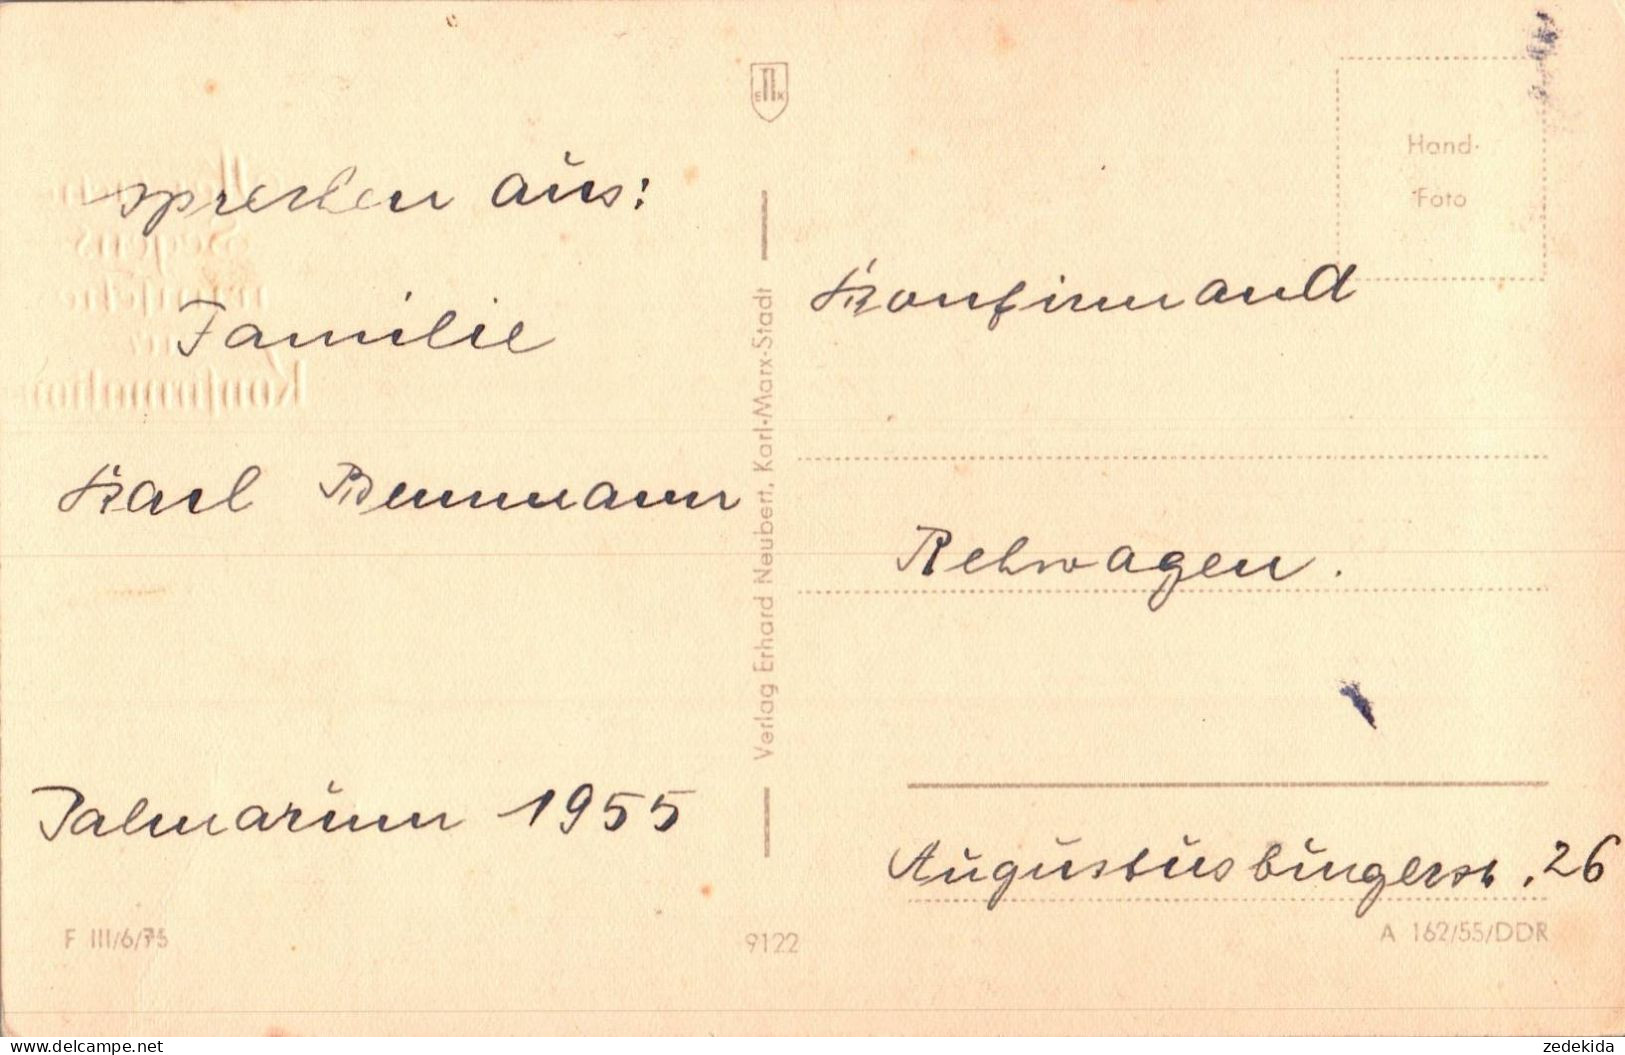 sprechen aus:
Familie
Karl Bemmann
Palmarum 1955
F III/6/73
Verlag Erhard Neubert, Karl-Marx-Stadt
9122
Hand-
Foto
Konfirmand
Rehwagen.
Augustusbürgerstr. 26
A 162/55/DDR
https://www.delcampe.net
zedekida